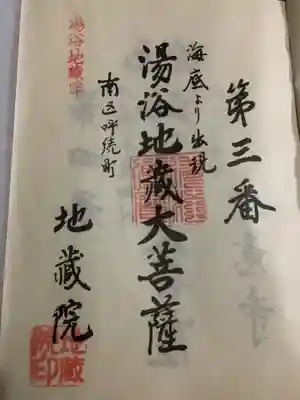 第三番
海底より出現
湯浴地蔵大菩薩
南区呼続町
地蔵院
湯浴地蔵尊
地蔵
院印